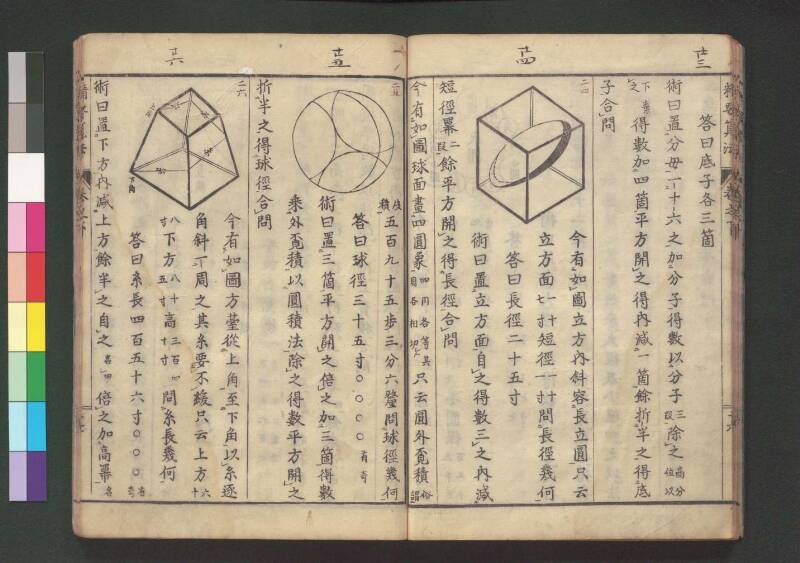 廿三
答曰底子各三箇
術曰置分母一十六之加分子得數以分子三除之
得數加四箇平方開之得內減一箇餘折半之得底
子合問
廿四
二四
今有如圖立方內斜容長立圓只云
立方面七十一寸短徑一十寸問長徑幾何
答曰長徑二十五寸
術曰置立方面自之得數三之內減
短徑冪二段餘平方開之得長徑合問
廿五
二五
今有如圖球面畫四圓象四內各等其圓各相切只云圓外覓積俗謂
皮積五百九十五步三分六釐問球徑幾何
答曰球徑三十五寸〇〇〇〇有奇
術曰置三箇平方開之倍之加三箇得數
乘外覓積以圓積法除之得數平方開之
折半之得球徑合問
廿六
二六
下角
今有如圖方臺從上角至下角以糸逐
角斜一周之其糸要不緩只云上方六十
八寸下方八十五寸高三百四十寸問糸長幾何
答曰糸長四百五十六寸〇〇〇有奇
術曰置下方內減上方餘半之自之名甲倍之加高冪